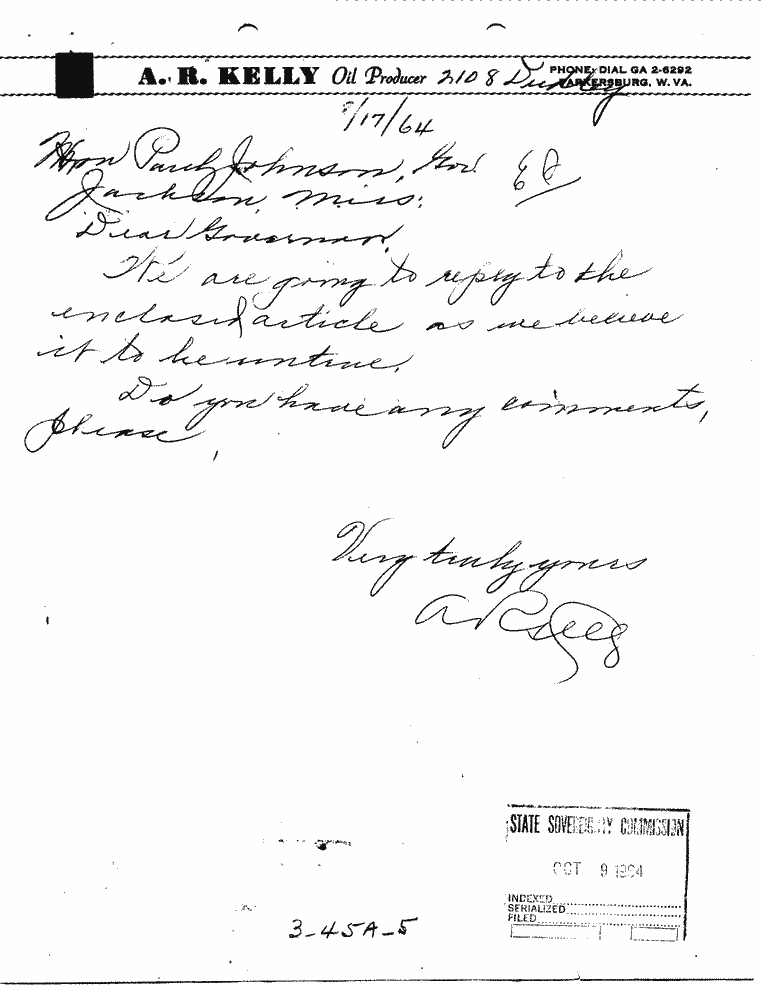 A. R. KELLY Oil Producer 2108 Dudley
PHONE: DIAL GA 2-6292
PARKERSBURG, W. VA.
/17/64
Hon Paul Johnson, Gov.
Jackson, Miss:
Dear Governor,
We are going to reply to the
enclosed article as we believe
it to be untrue.
Do you have any comments,
please,
Very truly yours
A R Kelly
STATE SOVEREIGNTY COMMISSION
OCT 9 1964
INDEXED
SERIALIZED
FILED
3-45A-5